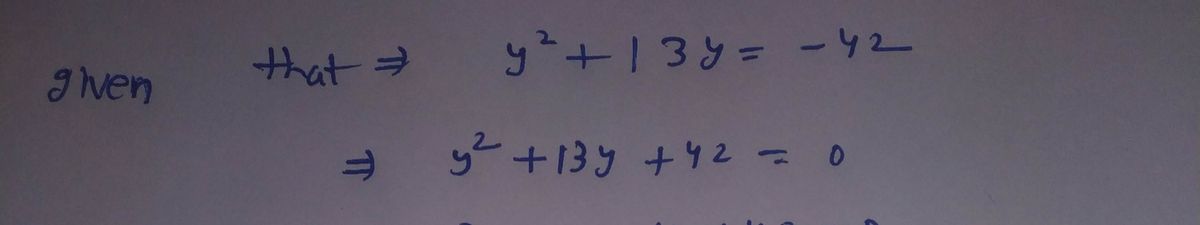 given that ⇒ y² + 13y = -42
⇒ y² + 13y + 42 = 0